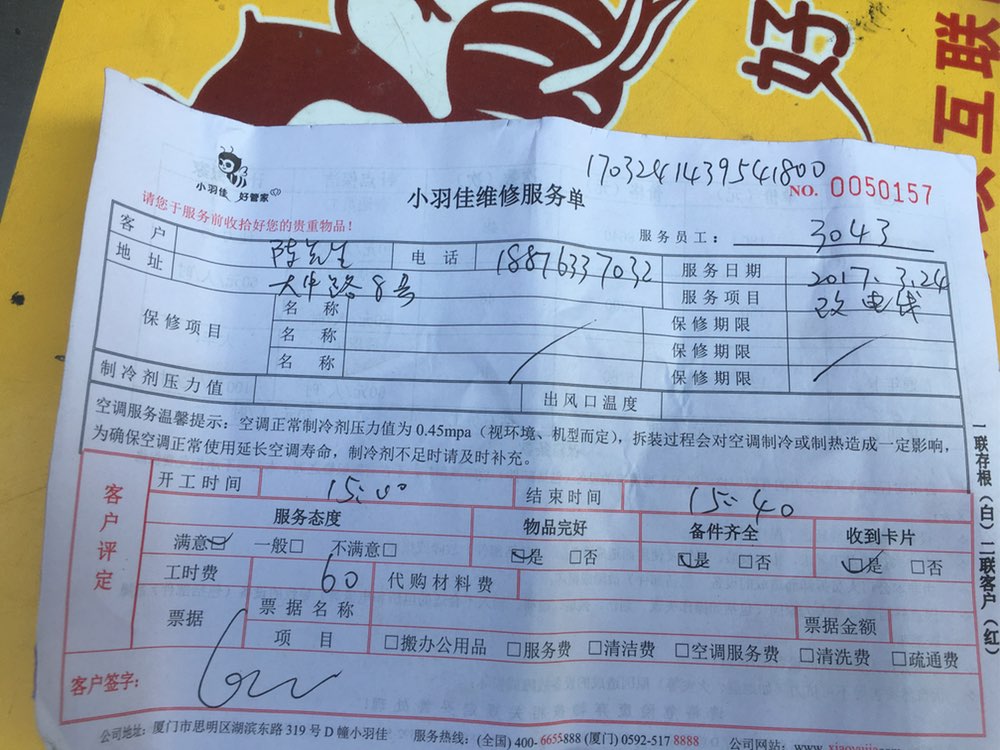 好
互联
1703241439541800
小羽佳 好管家
小羽佳维修服务单
NO. 0050157
请您于服务前收拾好您的贵重物品！
服务员工： 3043
客户 陈先生 电话 18876337032 服务日期 2017.3.24
地址 大中路8号 服务项目 改电线
保修项目 名称 保修期限
名称 保修期限
名称 保修期限
制冷剂压力值 出风口温度
空调服务温馨提示：空调正常制冷剂压力值为 0.45mpa（视环境、机型而定），拆装过程会对空调制冷或制热造成一定影响，
为确保空调正常使用延长空调寿命，制冷剂不足时请及时补充。
客户评定
开工时间 15:00 结束时间 15:40
服务态度 物品完好 备件齐全 收到卡片
满意☑ 一般□ 不满意□ ☑是 □否 ☑是 □否 ☑是 □否
工时费 60 代购材料费
票据 票据名称 票据金额
项目 □搬办公用品 □服务费 □清洁费 □空调服务费 □清洗费 □疏通费
客户签字：
公司地址：厦门市思明区湖滨东路 319 号 D 幢小羽佳 服务热线：(全国) 400-6655888 (厦门) 0592-517 8888 公司网站：www.
一联存根（白）二联客户（红）